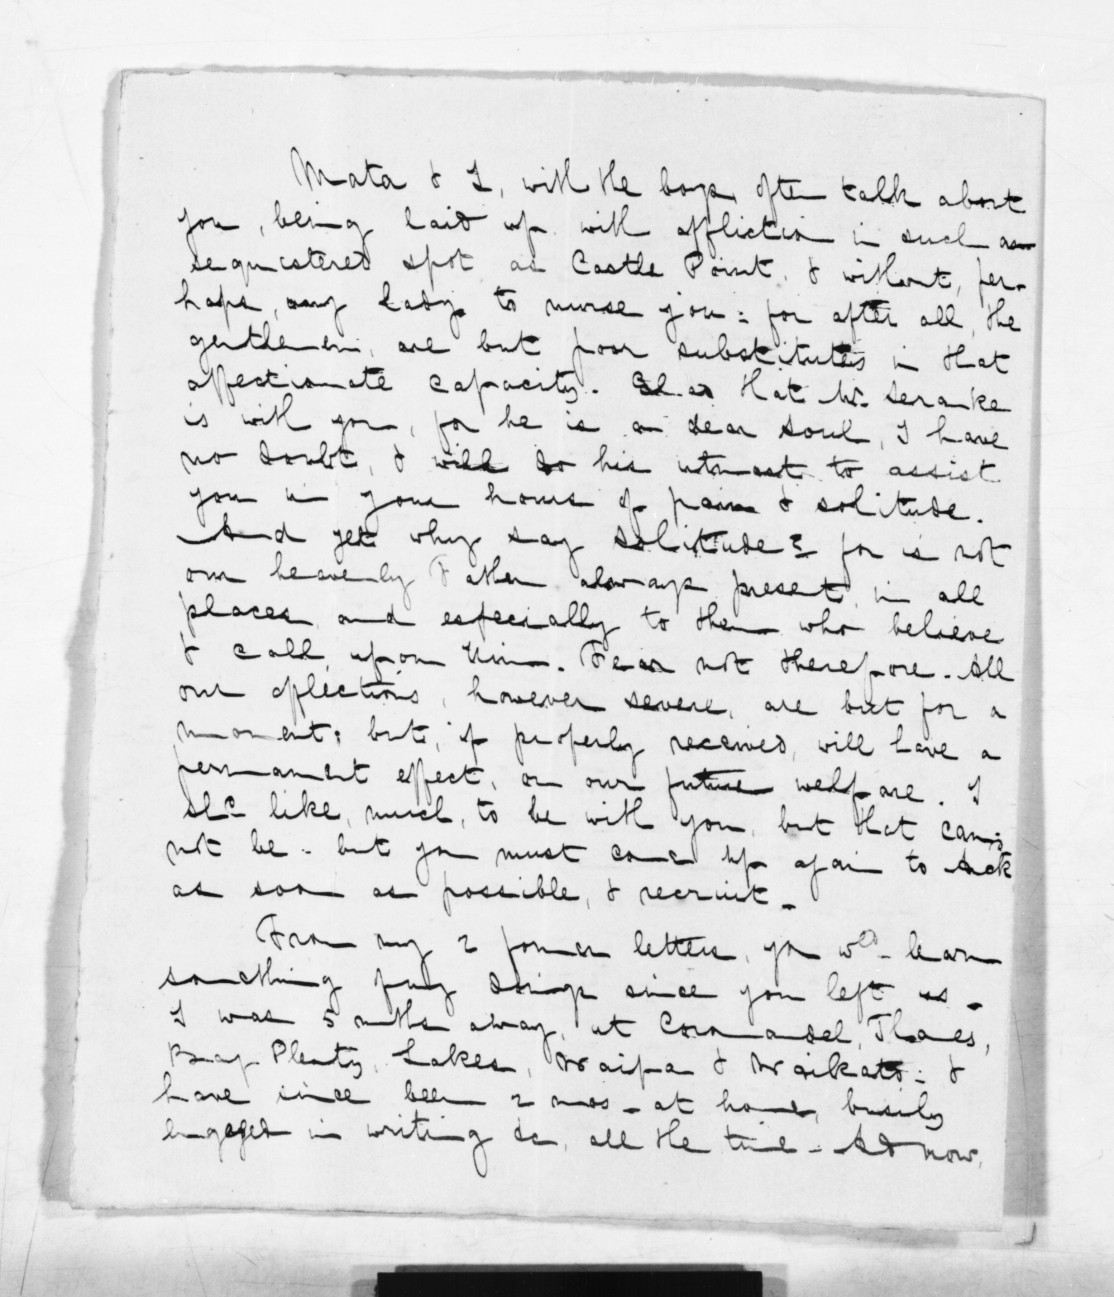 Mata & I, with the boys, often talk about
you, being laid up with affliction in such a
sequestered spot as Castle Point, & without, per-
haps, any lady to nurse you: for after all, the
gentlemen, are but poor substitutes in that
affectionate capacity. that Mr.
is with you, for he is a dear soul, I have
no doubt, & will do his utmost to assist
you in your hours of pain & solitude.
And yet why say solitude? for is not
our heavenly Father always present in all
places, and especially to them who believe
& call upon Him. Fear not therefore. All
our afflictions, however severe, are but for a
moment; but, if properly received, will have a
permanent effect, on our future welfare. I
shd like, much, to be with you, but that can
not be - but you must come up again to Auck
as soon as possible, & recruit.
From my 2 former letters, you wd learn
something of my doings since you left us.
I was 5 mths away, at Coromandel, Thames,
Bay Plenty, Lakes, Waipa & Waikato: &
have since been 2 mos at home, busily
engaged in writing &c, all the time. And now,